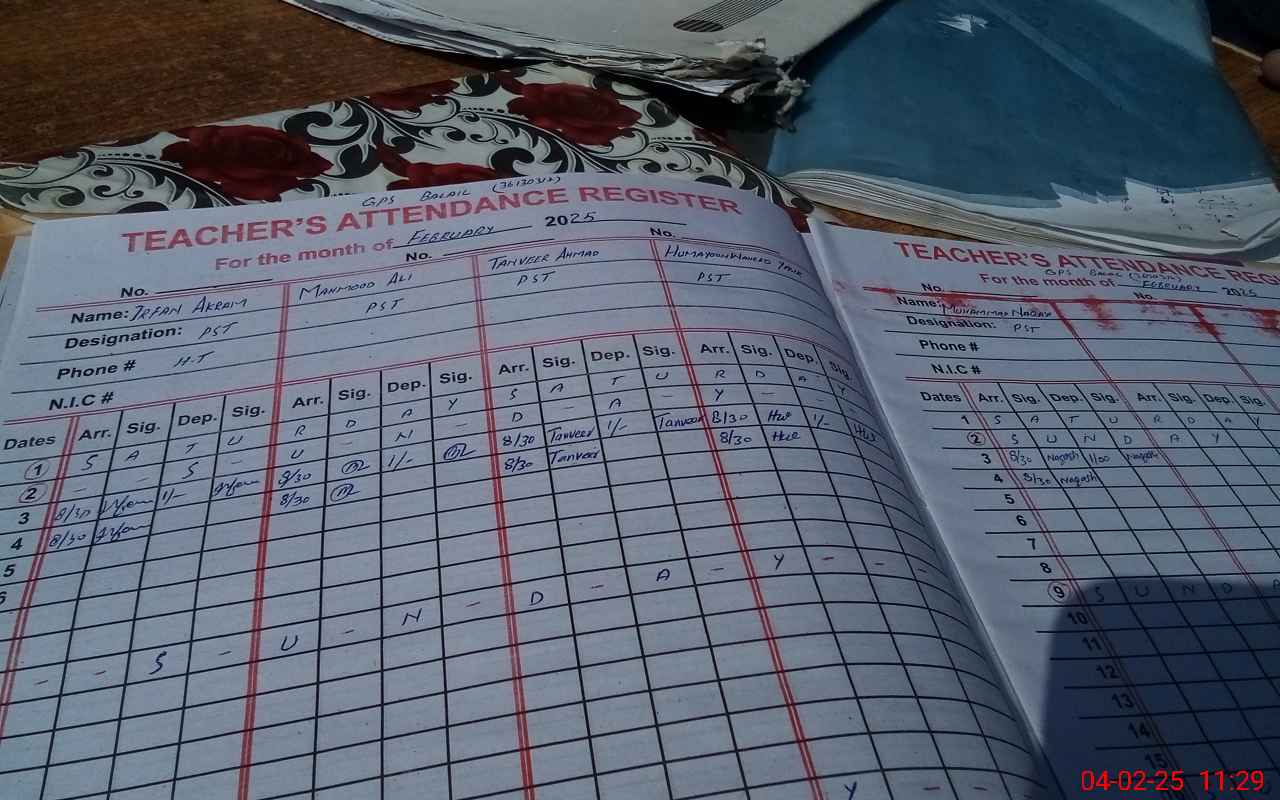 GPS BALAIL
TEACHER'S ATTENDANCE REGISTER
For the month of FEBRUARY 2025
No. No. No.
Name: IRFAN AKRAM MAHMOOD ALI TANVEER AHMAD HUMAYOUN WAHEED
Designation: PST PST PST PST
Phone # H.T
N.I.C #
Dates Arr. Sig. Dep. Sig. Arr. Sig. Dep. Sig. Arr. Sig. Dep. Sig. Arr. Sig. Dep. Sig.
1 S A T U R D A Y S A T U R D A Y
2 - - S - U - N - D - A - Y -
3 8/30 1/- 8/30 1/- 8/30 Tanveer 1/- Tanveer 8/30 HW 1/- HW
4 8/30 8/30 8/30 Tanveer 8/30 HW
5
6
- - S - U - N - D - A - Y - - -
Y - -
TEACHER'S ATTENDANCE REG
GPS BALAIL
For the month of FEBRUARY 2025
No. No.
Name: MUHAMMAD NAQASH
Designation: PST
Phone #
N.I.C #
Dates Arr. Sig. Dep. Sig. Arr. Sig. Dep. Sig.
1 S A T U R D A Y
2 S U N D A Y
3 8/30 Naqash 1/00 Naqash
4 8/30 Naqash
5
6
7
8
9 S U N D A
10
11
12
13
14
15
04-02-25 11:29